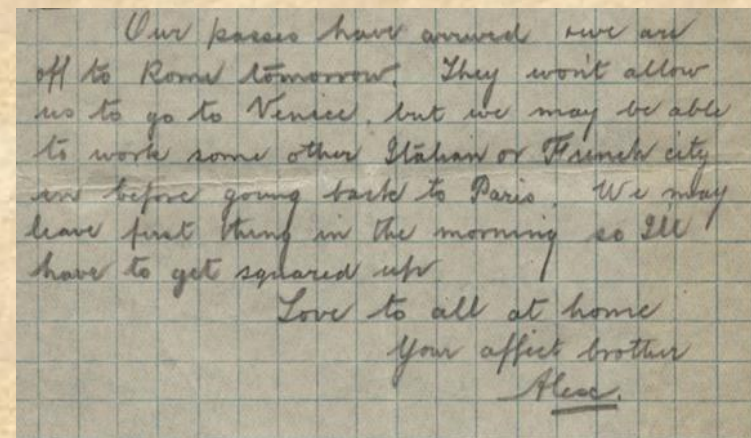 Our passes have arrived & we are
off to Rome tomorrow. They won't allow
us to go to Venice, but we may be able
to work some other Italian or French city
in before going back to Paris. We may
leave first thing in the morning so I'll
have to get squared up
Love to all at home
Your affect brother
Alex.